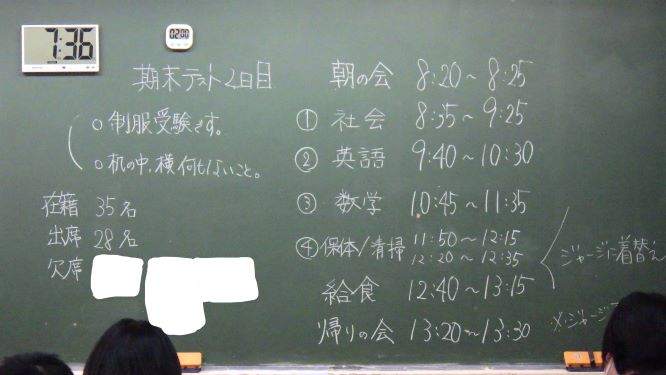 7:36
02:00
期末テスト2日目
○制服受験です。
○机の中、横何もないこと。
在籍 35名
出席 28名
欠席
朝の会 8:20～8:25
① 社会 8:35～9:25
② 英語 9:40～10:30
③ 数学 10:45～11:35
④ 保体/清掃 11:50～12:15
12:20～12:35
給食 12:40～13:15
帰りの会 13:20～13:30
ジャージに着替え
※ジャージ